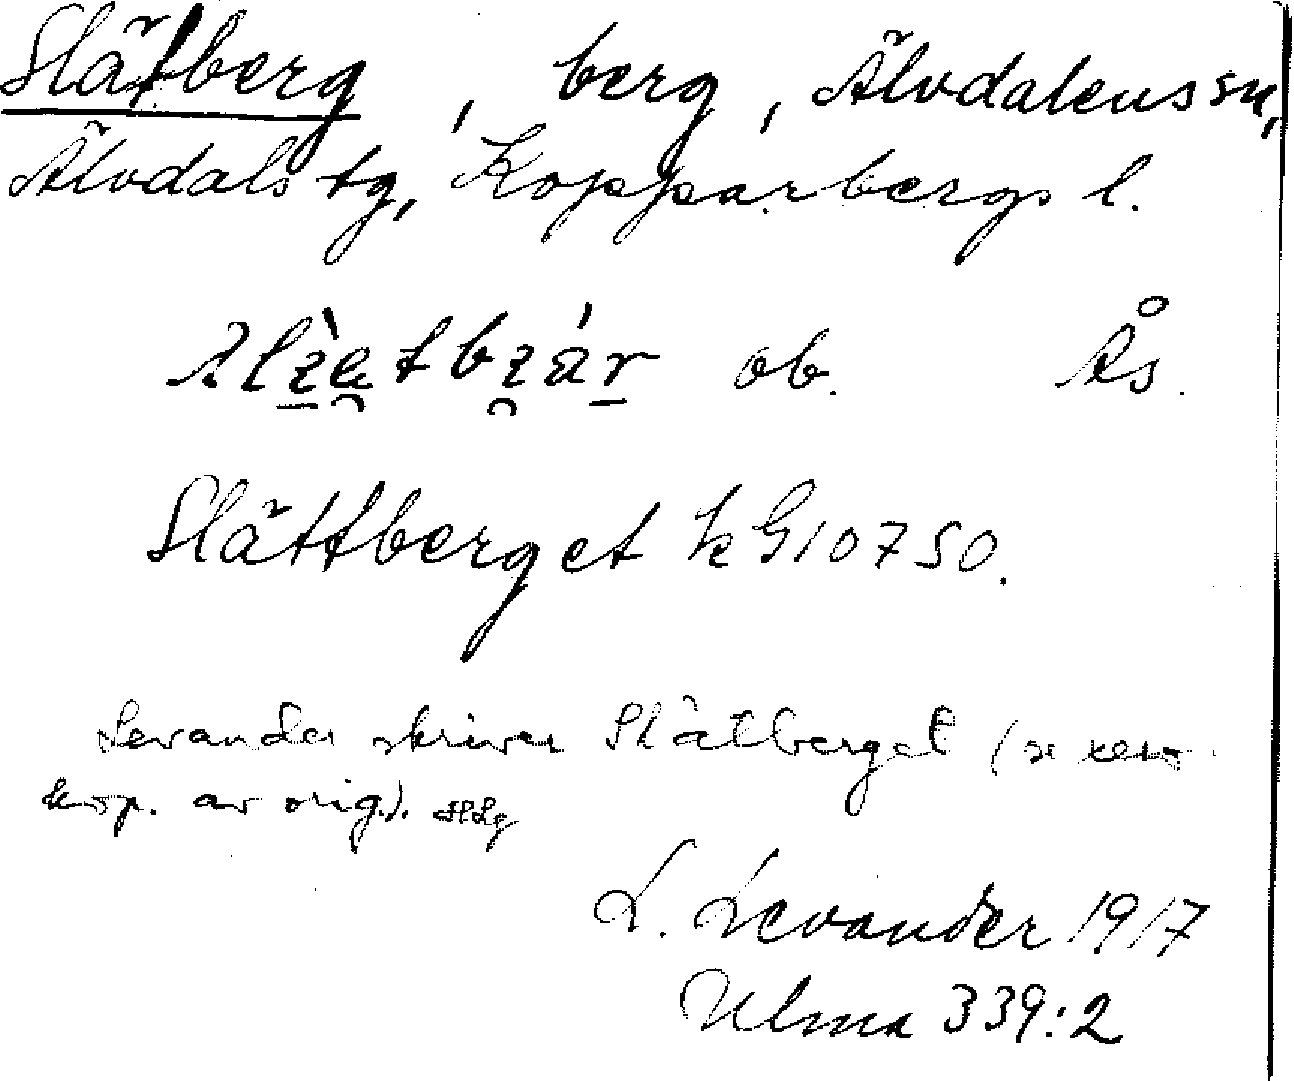 Slätberg, berg, Älvdalens sn,
Älvdals tg, Kopparbergs l.
ob. Ås.
Slättberget kG10750.
Levander skriver Slätberget (se xero-
kop. av orig.).
L. Levander 1917
Ulma 339:2